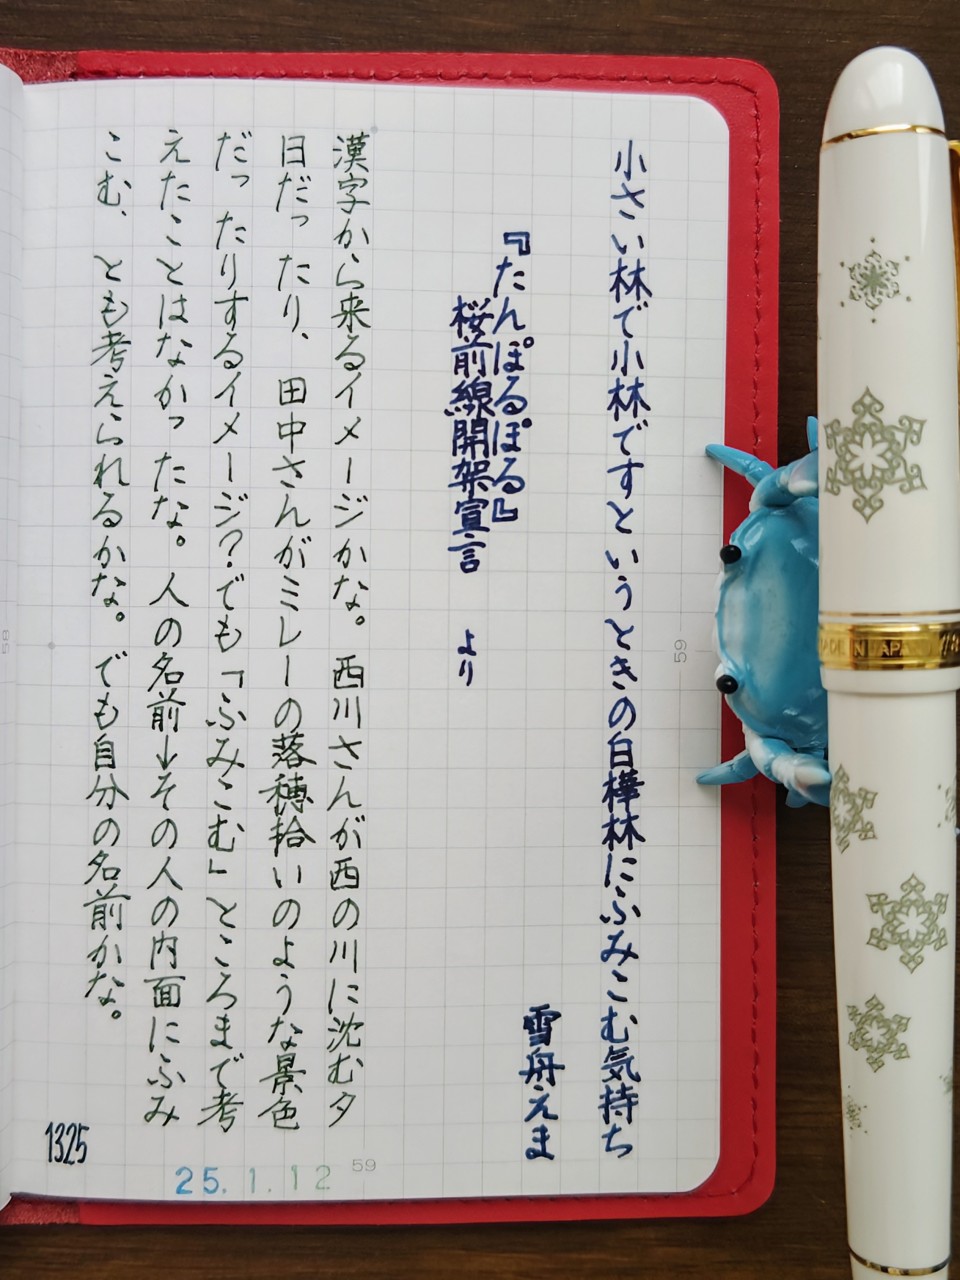 小さい林で小林ですというときの白樺林にふみこむ気持ち
雪舟えま
『たんぽるぽる』
桜前線開架宣言 より
漢字から来るイメージかな。西川さんが西の川に沈む夕
日だったり、田中さんがミレーの落穂拾いのような景色
だったりするイメージ？でも「ふみこむ」ところまで考
えたことはなかったな。人の名前→その人の内面にふみ
こむ、とも考えられるかな。でも自分の名前かな。
1325
25.1.12
59
59
58
MADE IN JAPAN